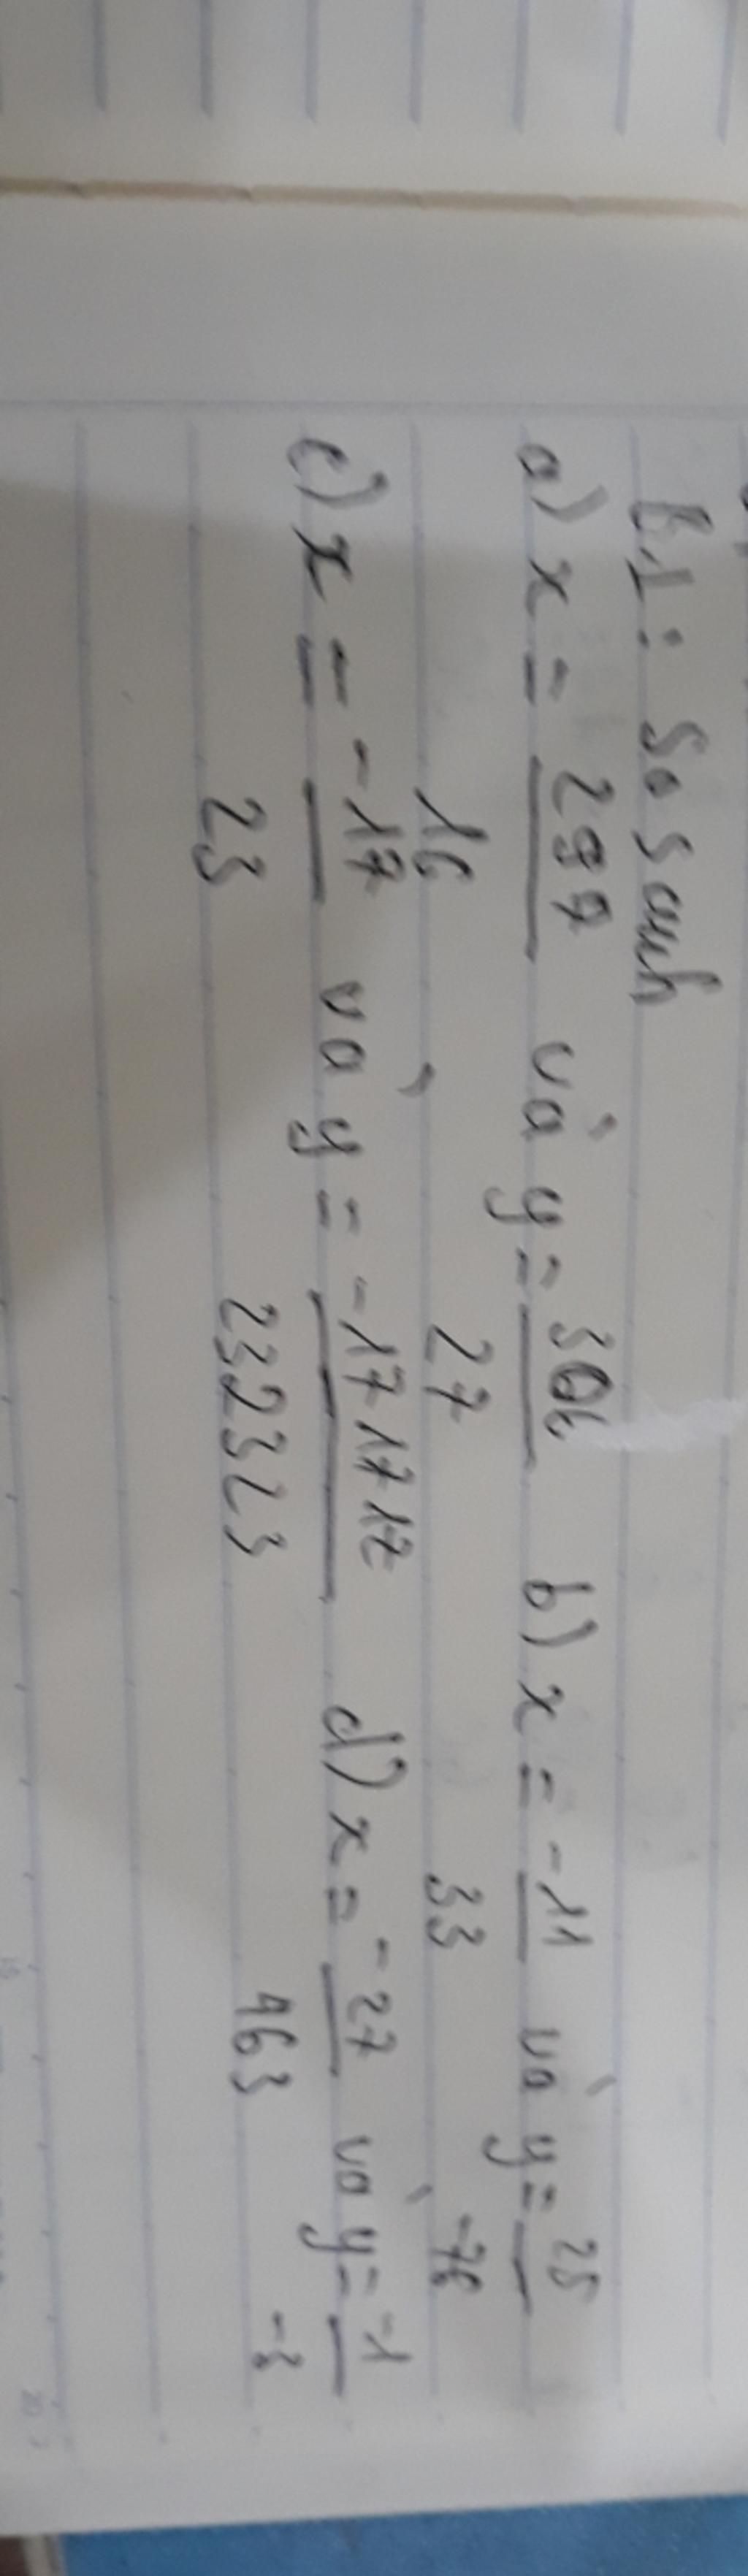 B1: So sánh
a) x = 297/16 và y = 306/27 b) x = -11/33 và y = 25/-76
c) x = -17/23 và y = -171717/232323 d) x = -27/463 và y = -1/-3